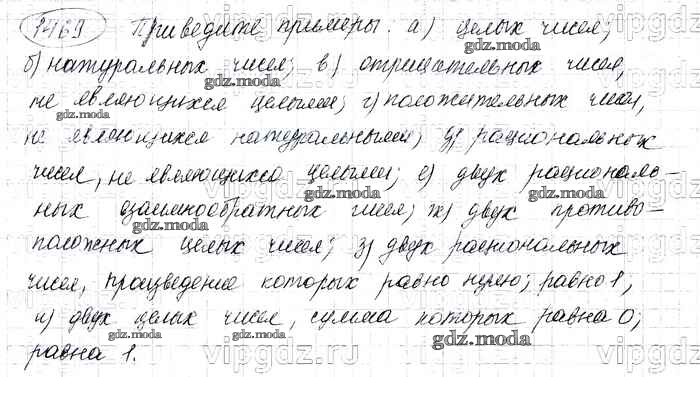 1469 Приведите примеры: а) целых чисел;
б) натуральных чисел; в) отрицательных чисел,
gdz.moda gdz.moda
не являющихся целыми; г) положительных чисел,
gdz.moda
не являющихся натуральными; д) рациональных
чисел, не являющихся целыми; е) двух рациональ-
vipgdz.ru vipgdz.ru vipgdz
gdz.moda gdz.moda
ных взаимнообратных чисел; ж) двух противо-
gdz.moda
положных целых чисел; з) двух рациональных
чисел, произведение которых равно нулю; равно 1;
и) двух целых чисел, сумма которых равна 0;
gdz.moda gdz.moda gdz.moda
равна 1.
vipgdz.ru vipgdz.ru vipgdz